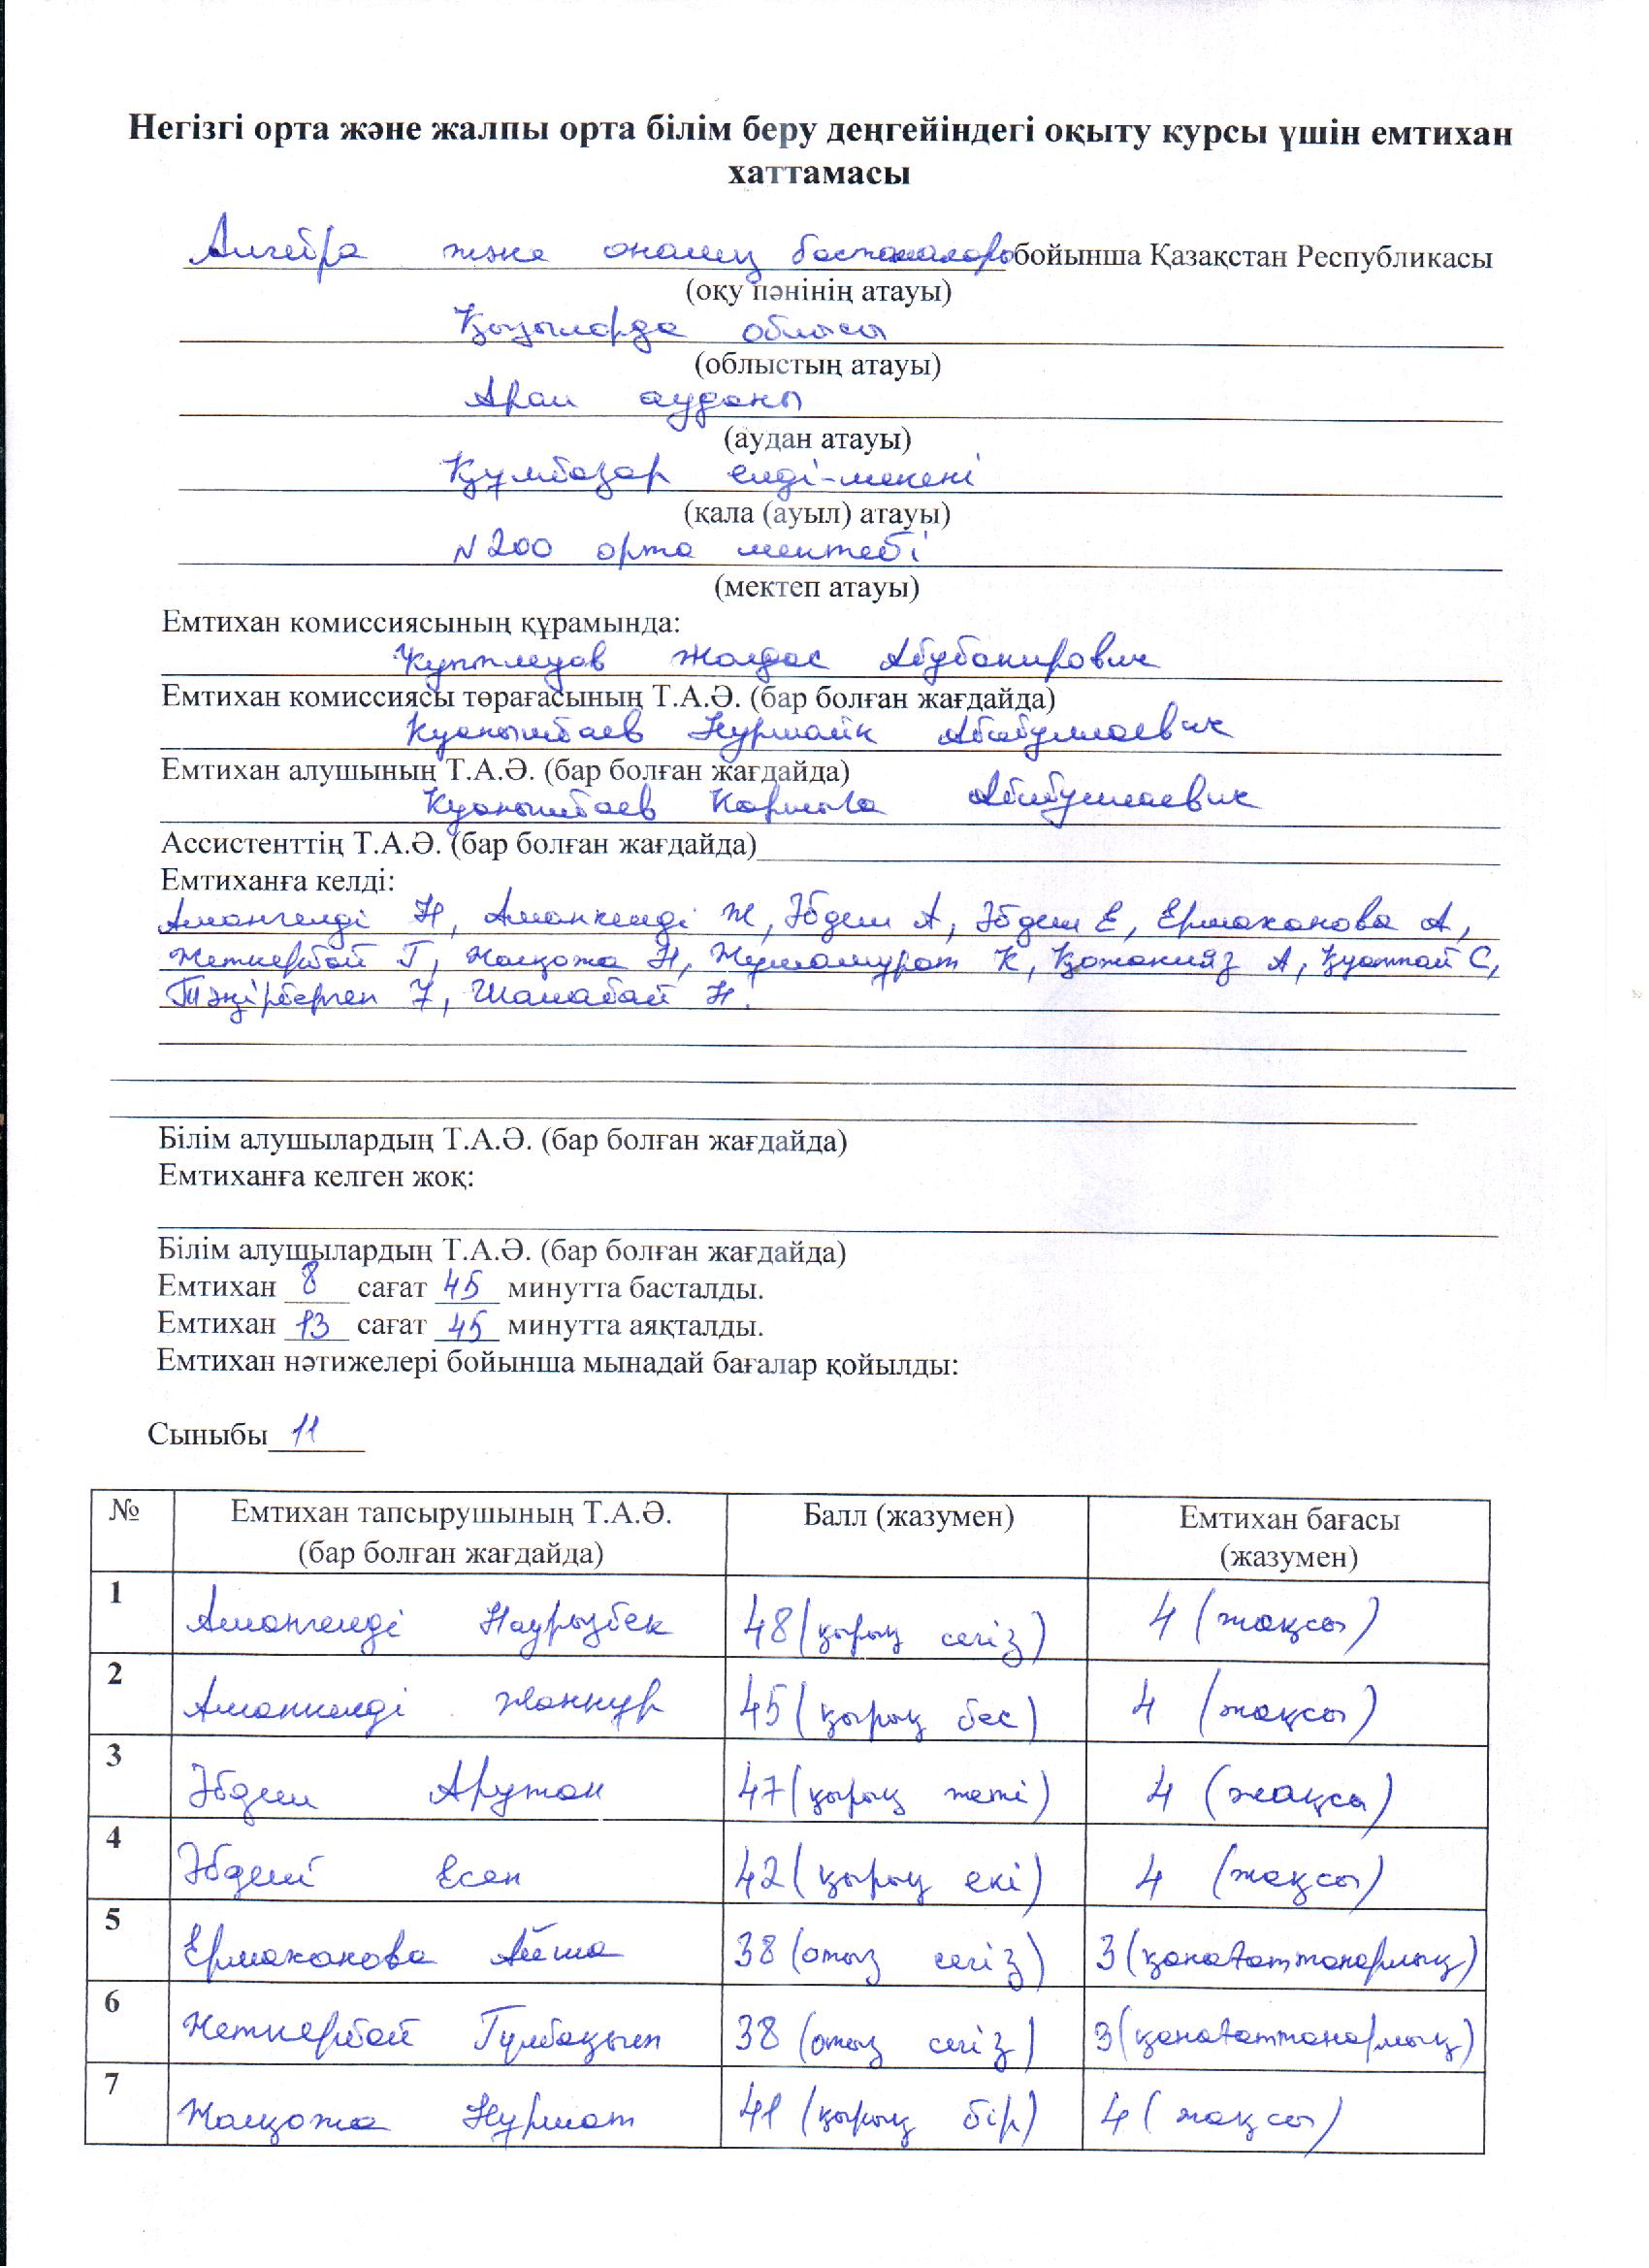 Негізгі орта және жалпы орта білім беру деңгейіндегі оқыту курсы үшін емтихан
хаттамасы
Алгебра және анализ бастамалары бойынша Қазақстан Республикасы
(оқу пәнінің атауы)
Қызылорда облысы
(облыстың атауы)
Арал ауданы
(аудан атауы)
Құмбазар елді-мекені
(қала (ауыл) атауы)
№200 орта мектебі
(мектеп атауы)
Емтихан комиссиясының құрамында:
Жолдас Абубакирович
Емтихан комиссиясы төрағасының Т.А.Ә. (бар болған жағдайда)
Куанышбаев Абибуллаевич
Емтихан алушының Т.А.Ә. (бар болған жағдайда)
Куанышбаев Абибуллаевич
Ассистенттің Т.А.Ә. (бар болған жағдайда)
Емтиханға келді:
Амангелді Н, Аманкелді Ж, Әбдеш А, Әбдеш Е, Ермаханова А,
Жеткербай Г, Жалқожа Н, Жұмамұрат К, Қожанияз А, Қуатбай С,
Тәңірберген Ұ, Шамабай Н.
Білім алушылардың Т.А.Ә. (бар болған жағдайда)
Емтиханға келген жоқ:
Білім алушылардың Т.А.Ә. (бар болған жағдайда)
Емтихан 8 сағат 45 минутта басталды.
Емтихан 13 сағат 45 минутта аяқталды.
Емтихан нәтижелері бойынша мынадай бағалар қойылды:
Сыныбы 11
№ Емтихан тапсырушының Т.А.Ә. (бар болған жағдайда) Балл (жазумен) Емтихан бағасы (жазумен)
1 Амангелді Наурызбек 48 (қырық сегіз) 4 (жақсы)
2 Аманкелді Жаннұр 45 (қырық бес) 4 (жақсы)
3 Әбдеш Аружан 47 (қырық жеті) 4 (жақсы)
4 Әбдеш Есен 42 (қырық екі) 4 (жақсы)
5 Ермаханова Айша 38 (отыз сегіз) 3 (қанағаттанарлық)
6 Жеткербай Гүлбақыт 38 (отыз сегіз) 3 (қанағаттанарлық)
7 Жалқожа Нұрмат 41 (қырық бір) 4 (жақсы)